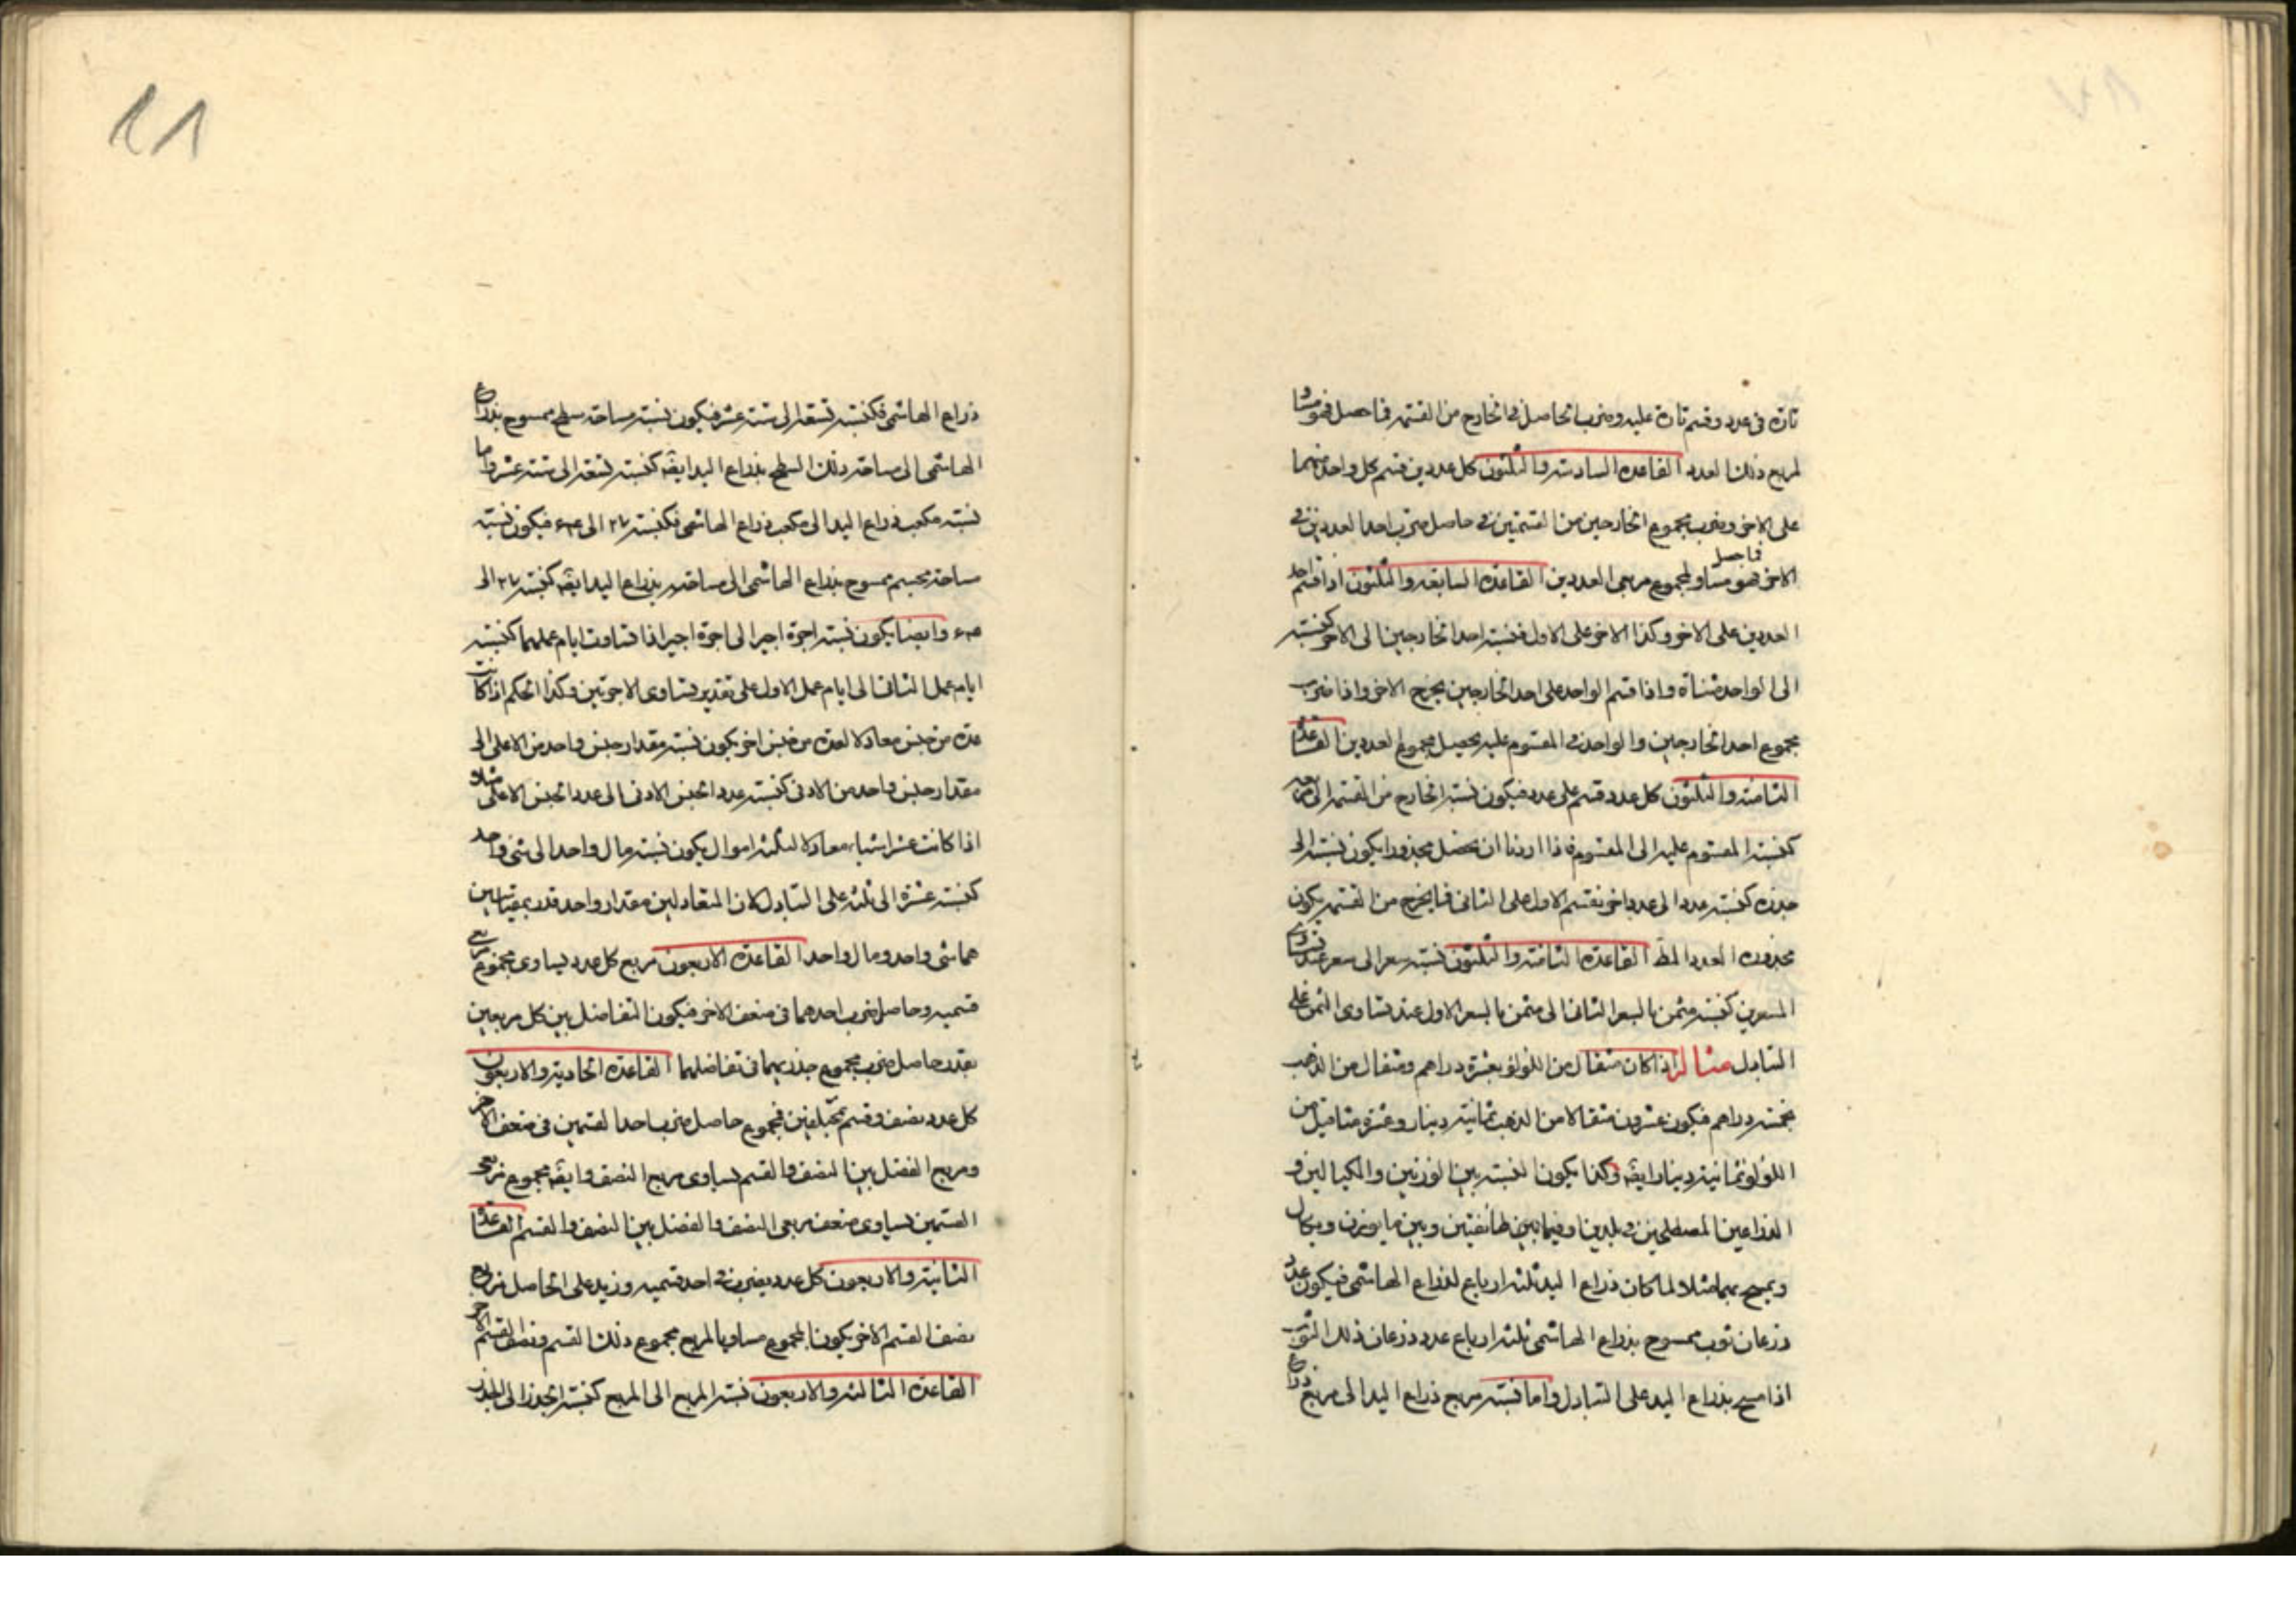 تارة فى عدد وقسم تارة عليه وضرب الحاصل فى الخارج من القسمة فما حصل فهو مساو
لمربع ذلك العدد القاعدة السادسة والثلثون كل عددين قسم كل واحد منهما
على الاخر وضرب مجموع الخارجين من القسمتين فى حاصل ضرب احد العددين فى
الاخر فما حصل فهو مساو لمجموع مربعى العددين القاعدة السابعة والثلثون اذا قسم احد
العددين على الاخر وكذا الاخر على الاول فنسبة احد الخارجين الى الاخر كنسبته
الى الواحد مثناة واذا قسم الواحد على احد الخارجين يخرج الاخر واذا ضرب
مجموع احد الخارجين والواحد فى المقسوم عليه يحصل مجموع العددين القاعدة
الثامنة والثلثون كل عدد قسم على عدد فيكون نسبة الخارج من القسمة الى
كنسبة المقسوم عليه الى المقسوم فاذا اردنا ان نحصل مجذورا يكون نسبته الى
جذره كنسبة عدد الى عدد اخر نقسم الاول على الثانى فما يخرج من القسمة يكون
مجذوره العدد المط القاعدة الثامنة والثلثون نسبة سعر الى سعر عند تساوى
السعرين كنسبة مثمن بالسعر الثانى الى مثمن بالسعر الاول عند تساوى الثمن على
التبادل مثاله اذا كان مثقال من اللولو بعشرة دراهم ومثقال من الذهب
بخمسة دراهم فيكون عشرون مثقالا من الذهب ثمانية دينار وعشرة مثاقيل من
اللولو ثمانية دينار ايضه وكذا يكون النسبة بين الوزنين والكيالين و
الذراعين المصطلحين فى بلدين او فيما بين طائفتين وبين ما يوزن ويكال
ويمسح بهما مثلا لما كان ذراع اليد ثلثة ارباع لذراع الهاشمى فيكون عدد
ذرعان ثوب ممسوح بذراع الهاشمى ثلثة ارباع عدد ذرعان ذلك الثوب
اذا مسح بذراع اليد على التبادل واما نسبة مربع ذراع اليد الى مربع ذراع
٤١
ذراع الهاشمى فكنسبة تسعة الى ستة عشر فيكون نسبة مساحة سطح ممسوح بذراع
الهاشمى الى مساحة ذلك السطح بذراع اليد ايضه كنسبة تسعة الى ستة عشر واما
نسبة مكعب ذراع اليد الى مكعب ذراع الهاشمى فكنسبة ٢٧ الى ٦٤ فيكون نسبة
مساحة مجسم ممسوح بذراع الهاشمى الى مساحته بذراع اليد ايضه كنسبة ٢٧ الى
٦٤ وايضا يكون نسبة اجرة اجير الى اجرة اجير اذا تساوت ايام عملهما كنسبة
ايام عمل الثانى الى ايام عمل الاول على تقدير تساوى الاجرتين وكذا الحكم اذا كانت
عدة من جنس معادلا لعدة من جنس اخر يكون نسبة مقدار جنس واحد من الاعلى الى
مقدار جنس واحد من الادنى كنسبة عدد الجنس الادنى الى عدد الجنس الاعلى مثلا
اذا كانت عشر اشياء معادلا لثلثة اموال يكون نسبة مال واحد الى شئ واحد
كنسبة عشرة الى ثلثة على التبادل لان المتعادلين مقدار واحد قدر بمقياسين
هما شئ واحد ومال واحد القاعدة الاربعون مربع كل عدد يساوى مجموع مربعى
قسميه وحاصل ضرب احدهما فى ضعف الاخر فيكون التفاضل بين كل مربعين
بقدر حاصل ضرب مجموع جذريهما فى تفاضلهما القاعدة الحادية والاربعون
كل عدد نصف وقسم بمختلفين فمجموع حاصل ضرب احد القسمين فى ضعف الاخر
ومربع الفضل بين النصف والقسم يساوى مربع النصف وايضه مجموع مربعى
القسمين يساوى ضعف مربعى النصف والفضل بين النصف والقسم القاعدة
الثانية والاربعون كل عدد يضرب فى احد قسميه وزيد على الحاصل مربع
نصف القسم الاخر يكون المجموع مساويا لمربع مجموع ذلك القسم ونصف القسم الاخر
القاعدة الثالثة والاربعون نسبة المربع الى المربع كنسبة الجذر الى الجذر